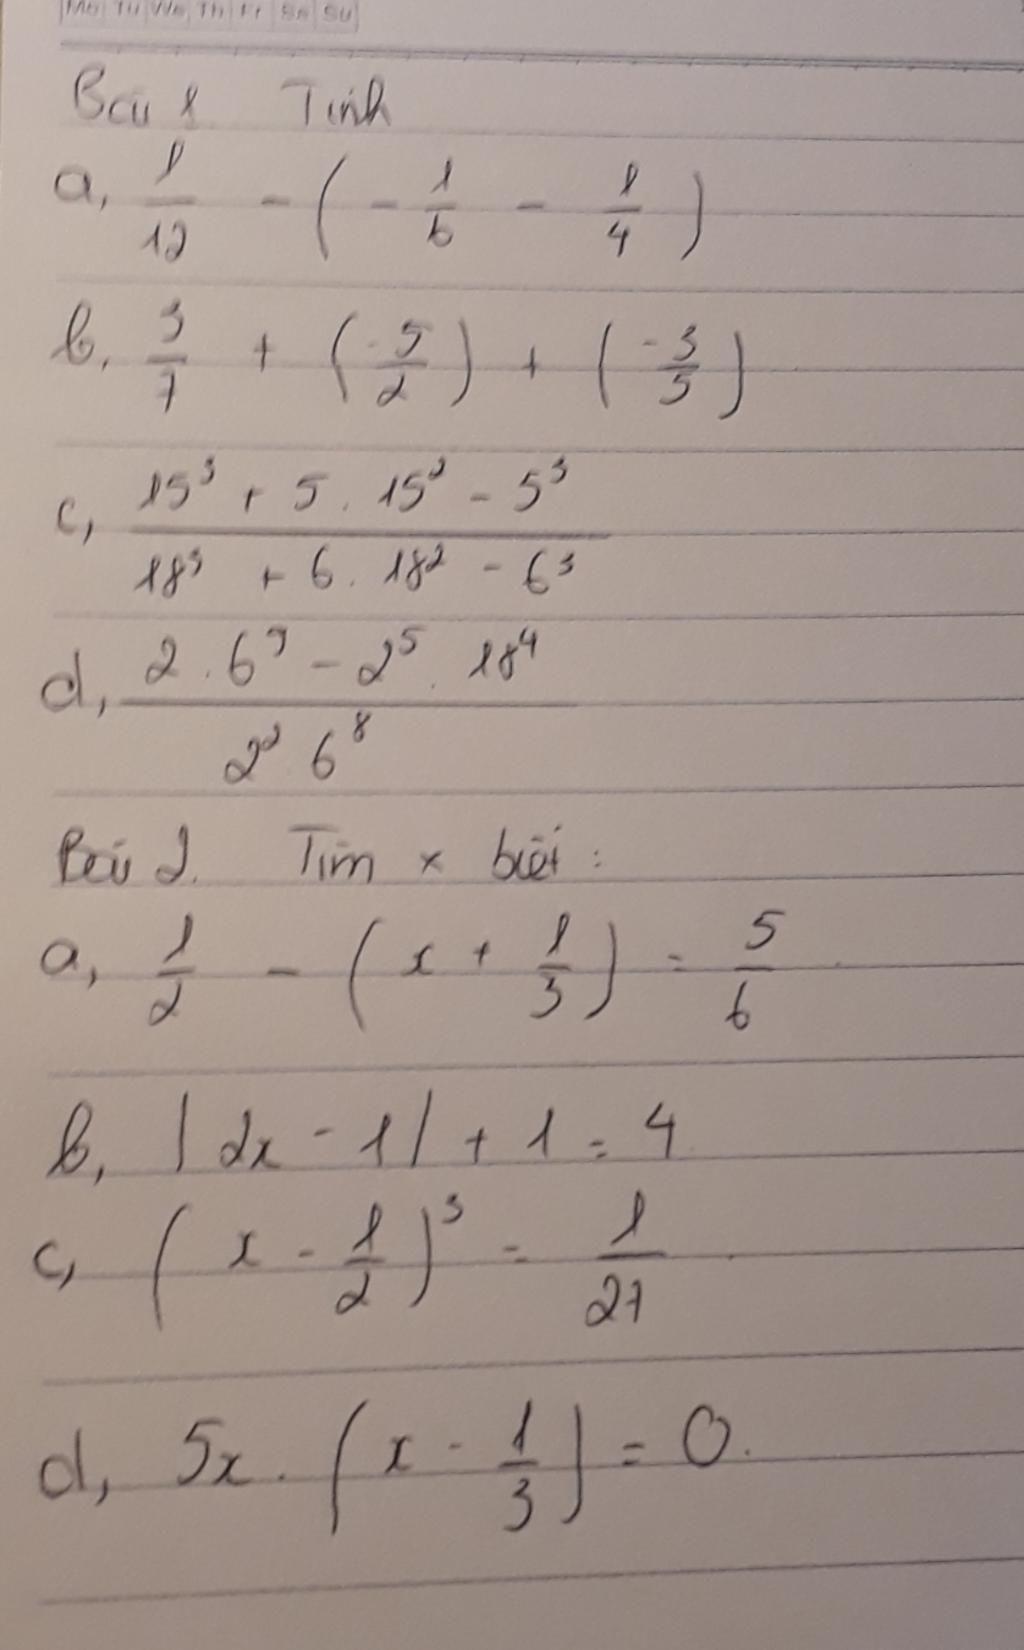 Mo Tu We Th Fr Sa Su
Bài 1. Tính
a, 1/12 - (- 1/6 - 1/4)
b, 3/7 + (-5/2) + (-3/5)
c, (15³ + 5 . 15² - 5³)/(18³ + 6 . 18² - 6³)
d, (2 . 6⁹ - 2⁵ . 18⁴)/(2² 6⁸)
Bài 2. Tìm x biết :
a, 1/2 - (x + 1/3) = 5/6
b, |2x - 1| + 1 = 4
c, (x - 1/2)³ = 1/27
d, 5x . (x - 1/3) = 0.